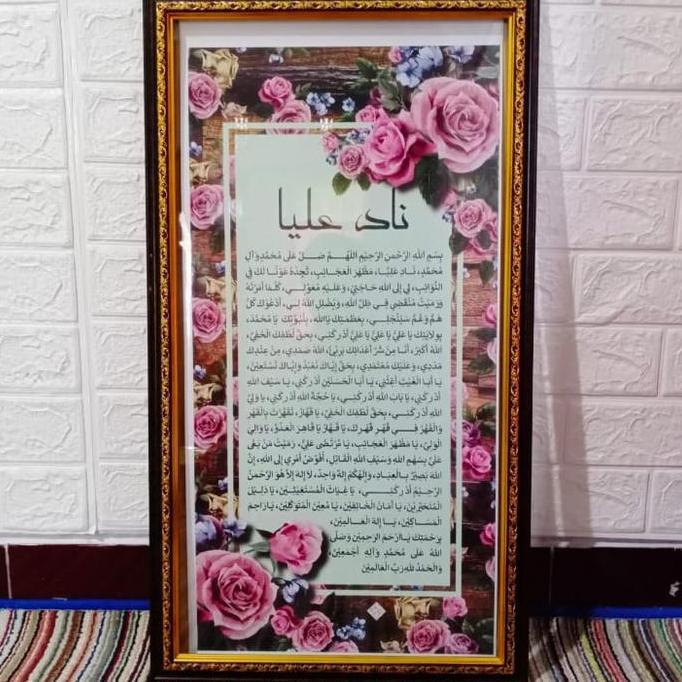 ناد عليا
بِسْمِ اللهِ الرَّحْمنِ الرَّحِيْمِ اللّهُمَّ صَلِّ عَلى مُحَمَّدٍ وَآلِ
مُحَمَّدٍ، نَادِ عَلِيًّا، مَظْهَرَ العَجَائِبِ، تَجِدْهُ عَوْنًا لَكَ فِي
النَّوَائِبِ، لِي إِلى اللهِ حَاجَتِيْ، وَعَلَيْهِ مُعَوَّلِي، كُلَّمَا أَمَرْتَهُ
وَرَمَيْتَ مُنْقَضِي فِي ظِلِّ اللهِ، وَيُضَلِلِ اللهُ لِي، أَدْعُوْكَ كُلَّ
هَمٍّ وَغَمٍّ سَيَنْجَلِي، بِعَظَمَتِكَ يَاالله، بِنُبُوَّتِكَ يَا مُحَمَّدُ،
بِوِلَايَتِكَ يَا عَلِيُّ يَا عَلِيُّ يَا عَلِيُّ أَدْرِكْنِي، بِحَقِّ لُطْفِكَ الْخَفِيِّ،
اللهُ أَكْبَرُ، أَنَا مِنْ شَرِّ أَعْدَائِكَ بَرِيْءٌ، اللهُ صَمَدِي، مِنْ عِنْدِكَ
مَدَدِي، وَعَلَيْكَ مُعْتَمَدِي، بِحَقِّ إِيَّاكَ نَعْبُدُ وَإِيَّاكَ نَسْتَعِيْنُ،
يَا أَبَا الْغَيْثِ أَغِثْنِي، يَا أَبَا الْحَسَنَيْنِ أَدْرِكْنِي، يَا سَيْفَ اللهِ
أَدْرِكْنِي، يَا بَابَ اللهِ أَدْرِكْنِي، يَا حُجَّةَ اللهِ أَدْرِكْنِي، يَا وَلِيَّ
اللهِ أَدْرِكْنِي، بِحَقِّ لُطْفِكَ الْخَفِيِّ، يَا قَهَّارُ، تَقَهَّرْتَ بِالْقَهْرِ
وَالْقَهْرُ فِي قَهْرِ قَهْرِكَ، يَا قَهَّارُ يَا قَاهِرَ العَدُوِّ، يَا وَالِيَ
الْوَلِيِّ، يَا مَظْهَرَ العَجَائِبِ، يَا مُرْتَضَى عَلِيُّ، رَمَيْتَ مَنْ بَغَى
عَلَيَّ بِسَهْمِ اللهِ وَسَيْفِ اللهِ القَاتِلِ، أُفَوِّضُ أَمْرِي إِلى اللهِ، إِنَّ
اللهَ بَصِيْرٌ بِالْعِبَادِ، وَإِلهُكُمْ إِلهٌ وَاحِدٌ، لاَ إِلهَ إِلاَّ هُوَ الرَّحْمنُ
الرَّحِيْمُ أَدْرِكْنِي، يَا غِيَاثَ الْمُسْتَغِيْثِيْنَ، يَا دَلِيْلَ
الْمُتَحَيِّرِيْنَ، يَا أَمَانَ الْخَائِفِيْنَ، يَا مُعِيْنَ الْمُتَوَكِّلِيْنَ، يَا رَاحِمَ
الْمَسَاكِيْنَ، يَا إِلهَ العَالَمِيْنَ،
بِرَحْمَتِكَ يَا أَرْحَمَ الرَّحِمِيْنَ وَصَلَّى
اللهُ عَلى مُحَمَّدٍ وَآلِهِ أَجْمَعِيْنَ،
وَالْحَمْدُ للهِ رَبِّ الْعَالَمِيْنَ